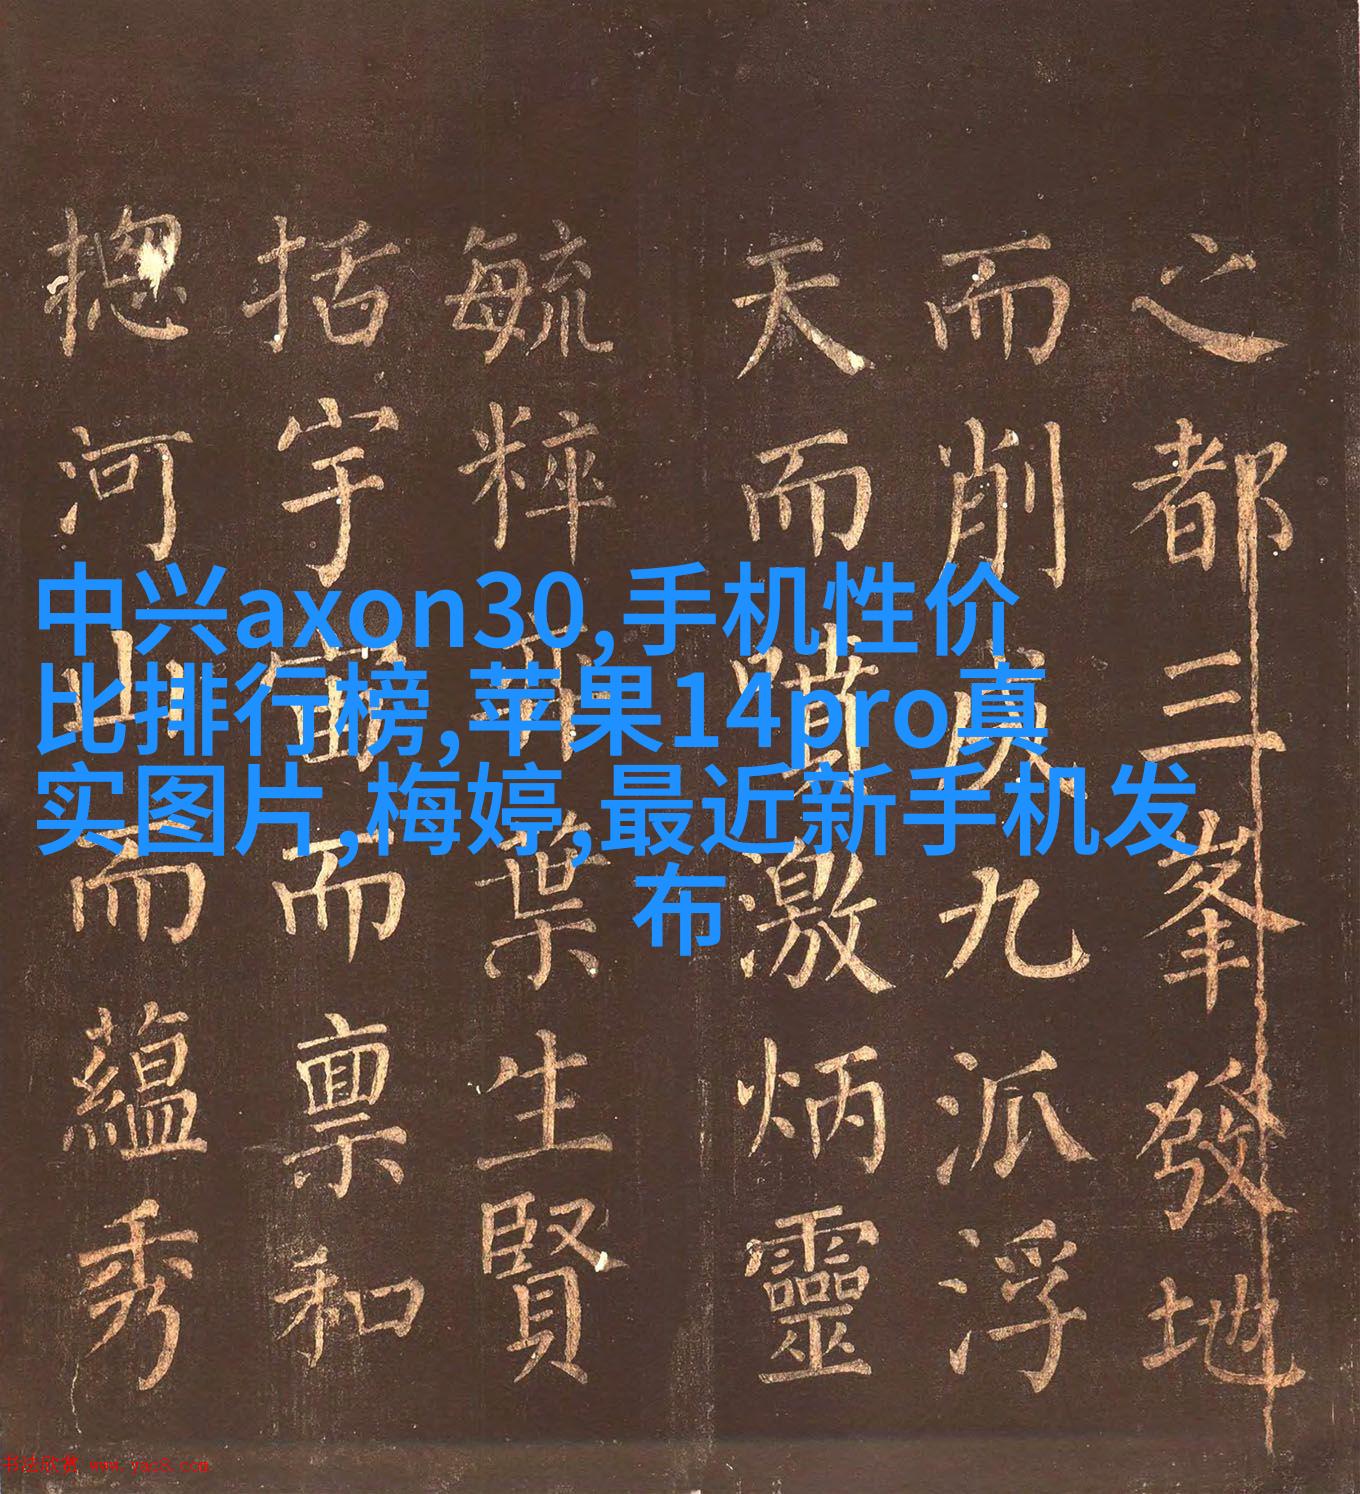 中兴axon30,手机性价
比排行榜,苹果14pro真
实图片,梅婷,最近新手机发
布
之都三峯發地
而削成九派浮
天而噴激炳靈
毓粹升葉生賢
括宇宙而禀和
揔河山而蘊秀
书法欣赏 www.yac8.com